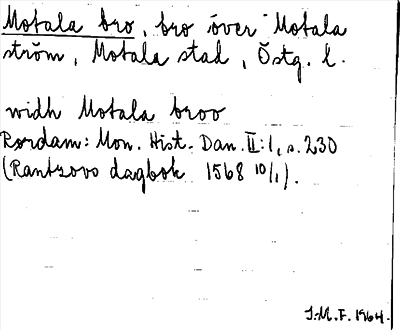 Motala bro, bro över Motala
ström, Motala stad, Östg. l.
widh Motala broo
Rørdam: Mon. Hist. Dan. II:1, s. 230
(Rantzovs dagbok 1568 10/1).
J.M.F. 1964.